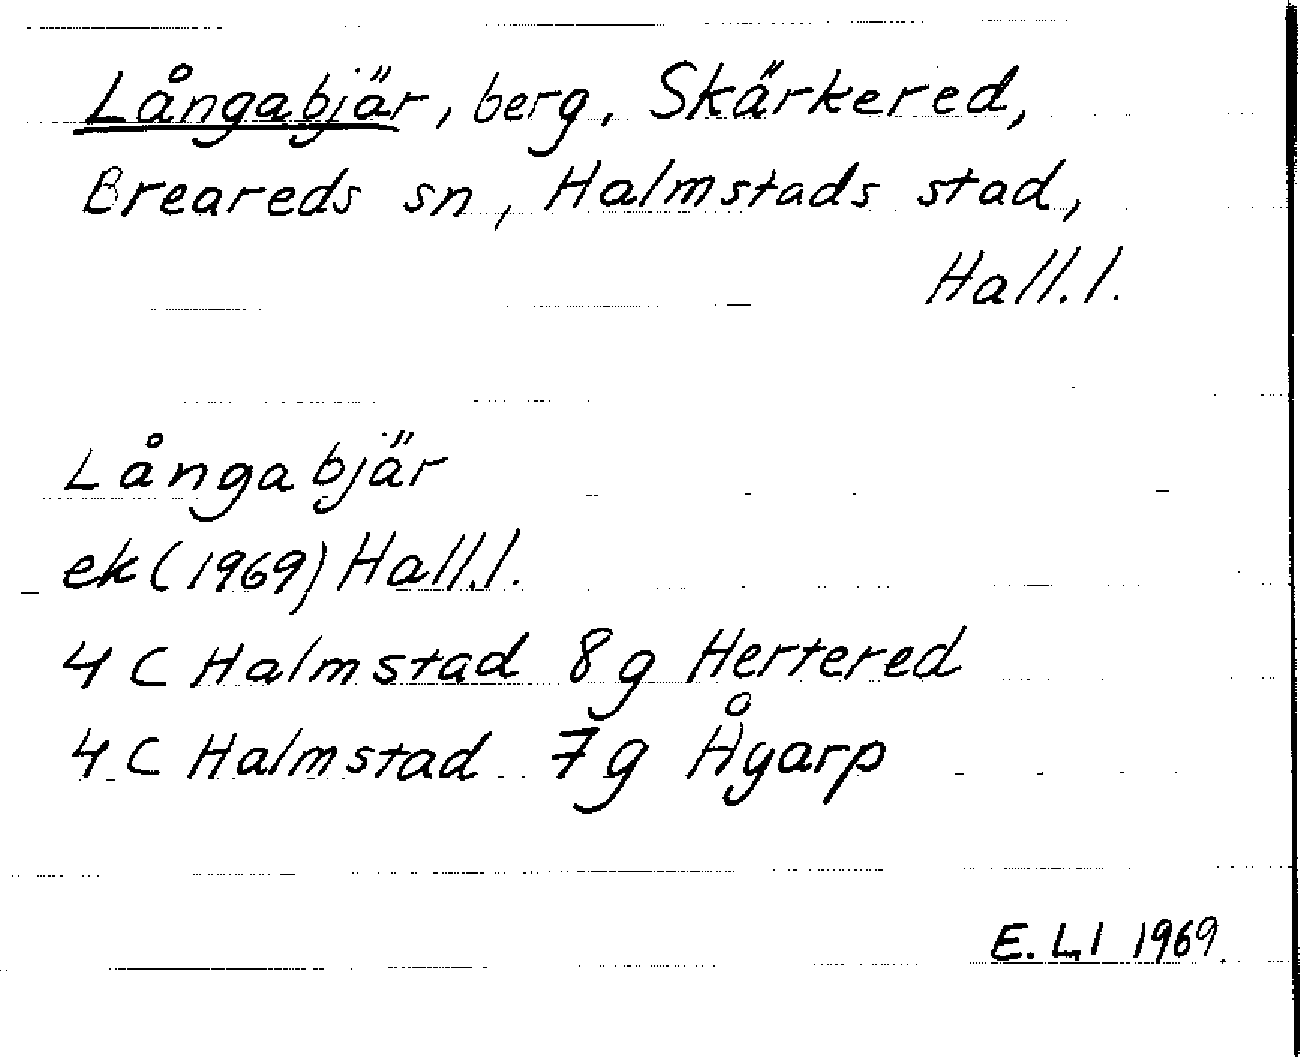 Långabjär, berg, Skärkered,
Breareds sn, Halmstads stad,
Hall. l.
Långabjär
ek (1969) Hall. l.
4 C Halmstad 8 g Hertered
4 C Halmstad 7 g Ågarp
E. L I 1969.